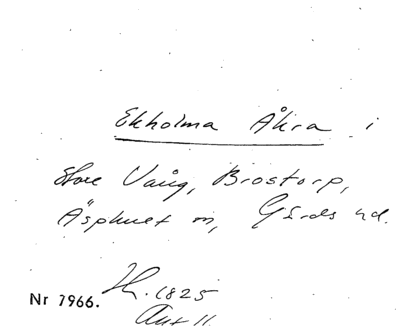 Ekholma Åkra i
Store Vång, Brostorp,
Äsphult sn, Gärds hd.
Nr 7966. H. 1825
Akt 11.